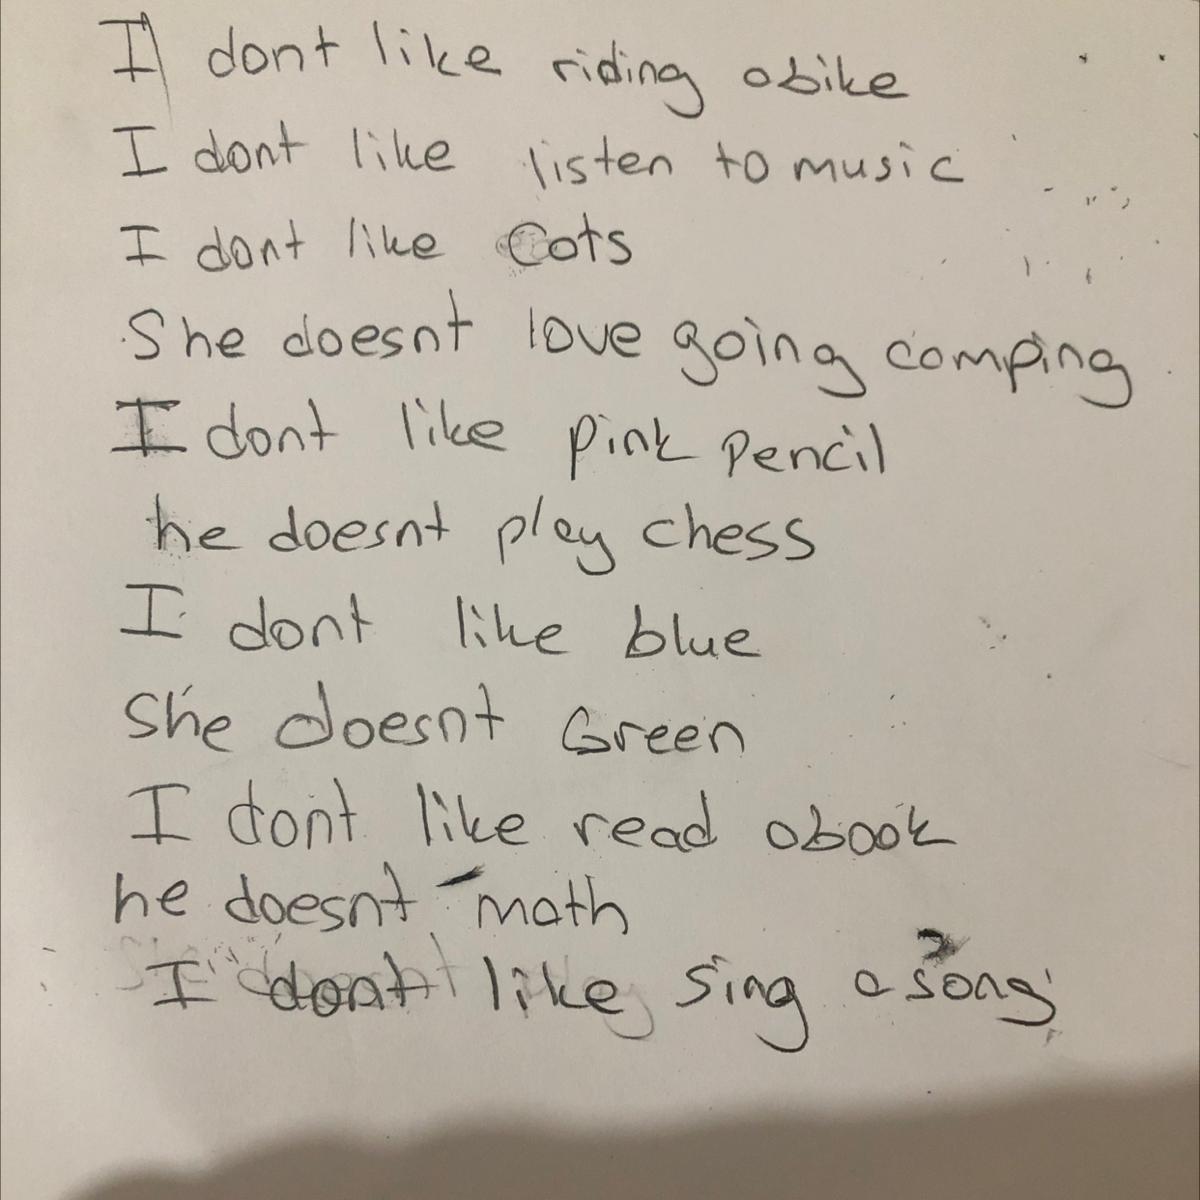 I dont like riding a bike
I dont like listen to music
I dont like Cats
She doesnt love going camping
I dont like pink pencil
he doesnt play chess
I dont like blue
She doesnt Green
I dont like read a book
he doesnt math
I dont like sing a song